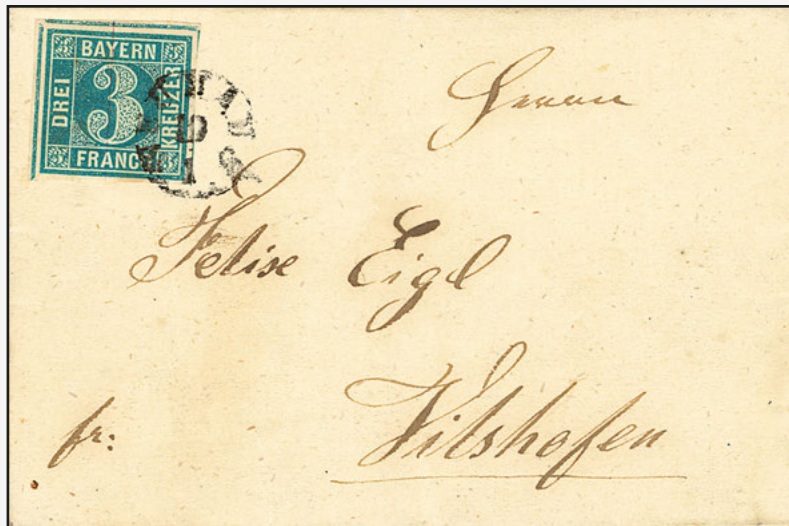 BAYERN
DREI
3
KREUZER
FRANCO
Herrn
Felise Eigl
Vilshofen
fr: